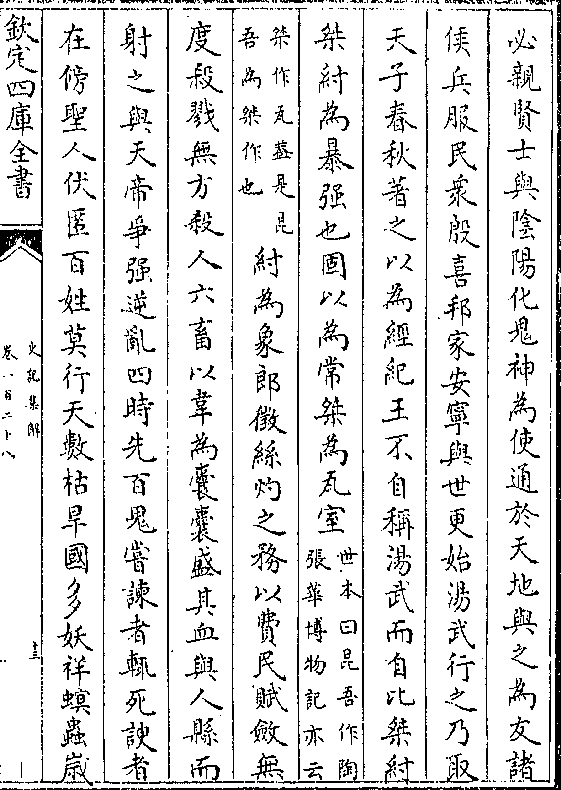 必親賢士與陰陽化鬼神為使通於天地與之為友諸
侯兵服民衆殷喜邦家安寧與世更始湯武行之乃取
天子春秋著之以為經紀王不自稱湯武而自比桀紂
桀紂為暴强也固以為常桀為瓦室
世本曰昆吾作陶
張華博物記亦云
桀作瓦葢是昆
吾為桀作也
紂為象郎徵絲灼之務以費民賦斂無
度殺戮無方殺人六畜以韋為囊囊盛其血與人縣而
射之與天帝爭强逆亂四時先百鬼嘗諫者輒死諛者
在傍聖人伏匿百姓莫行天數枯旱國多妖祥螟蟲嵗
欽定四庫全書
史記集解
卷一百二十八